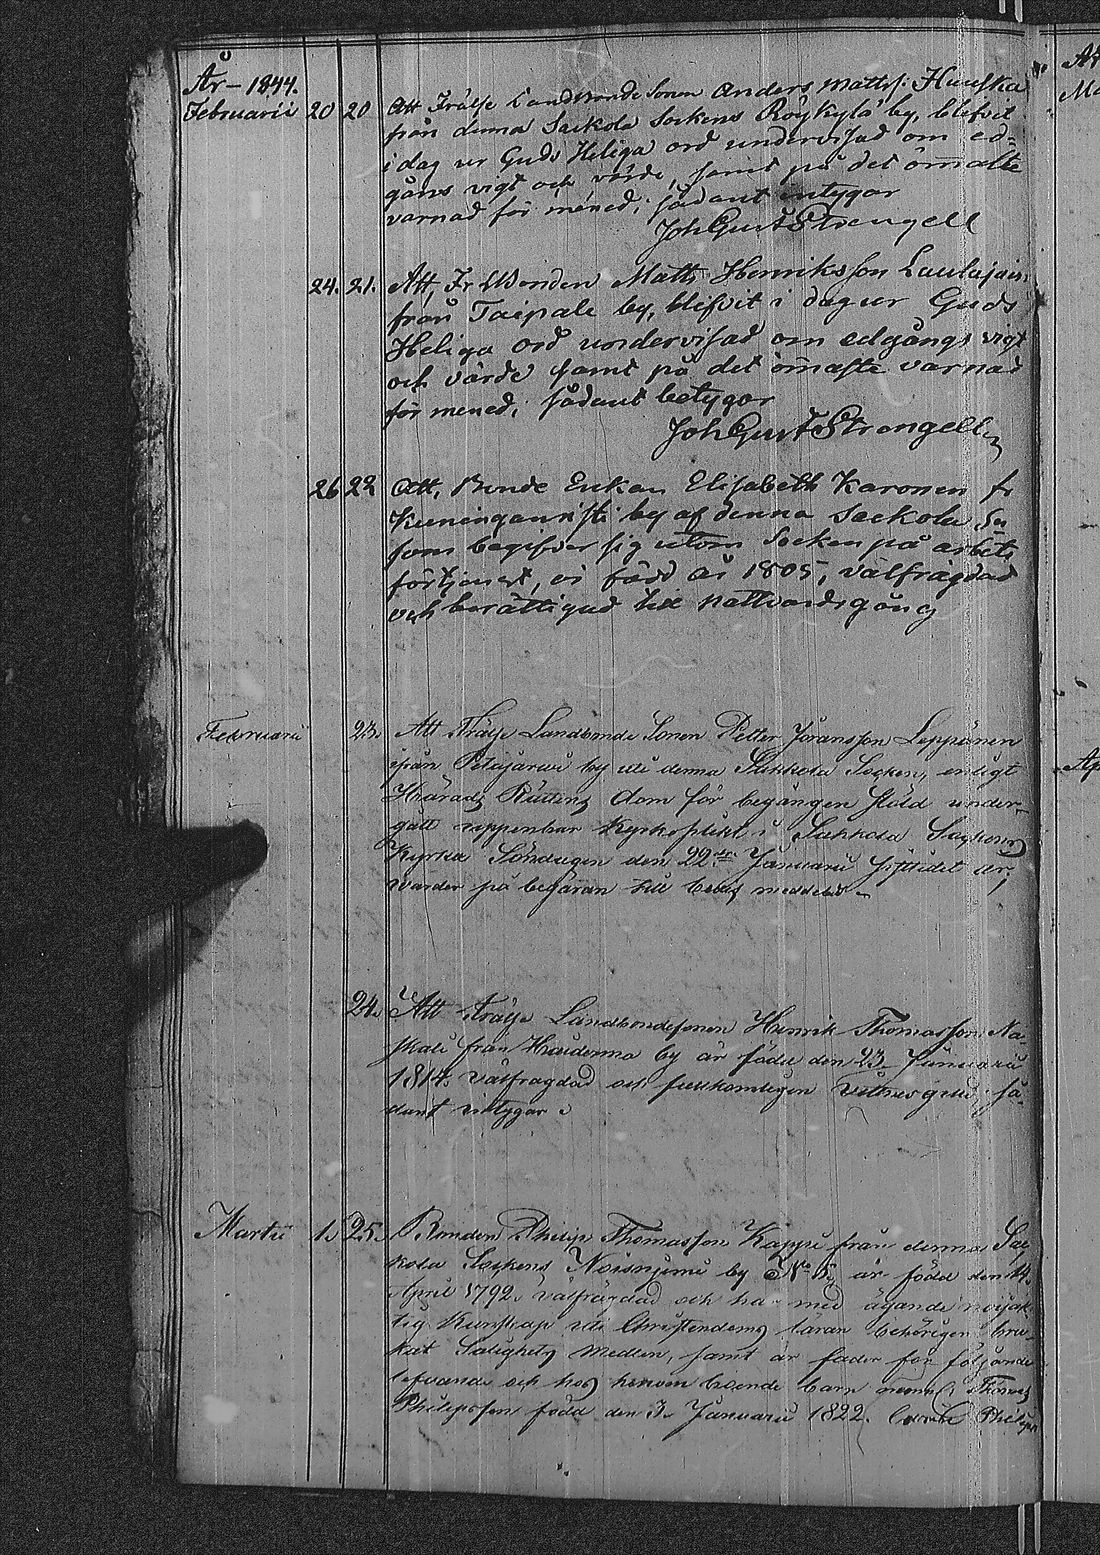 År 1844.
Februarii 20 20 Att Frälse Landbonde Sonen Anders Mattsf.
från denna Sackola Sockens Röykylä by, blefvit
i dag ur Guds Heliga ord undervisad om ed-
gångs vigt och värde, samt på det ömaste
varnad för mened; sådant intygar
Joh Gust Strengell
24. 21. Att Fr. Bonden Matts Henriksson Laulajain
från Taipale by, blefvit i dag ur Guds
Heliga ord undervisad om edgångs vigt
och värde samt på det ömaste varnad
för mened; sådant betygar
Joh Gust Strengell
26 22 Att, Bonde Enkan Elisabeth Karonen fr
by af denna Sackola Sn
som begifver sig utom Socken på arbets
förtjenst, är född år 1805, välfrägdad
och berättigad till nattvardsgång
Februarii 23. Att Frälse Landbonde Sonen Petter Jöransson Leppänen
ifrån Petäjärvi by uti denna Sakkola Socken, enligt
Härads Rättens dom för begången stöld under-
gått uppenbar Kyrkoplikt i Sakkola Sockens
Kyrka Söndagen den 22 Januarii sistlidet år,
varder på begäran till bevis meddelat
24. Att Frälse Landbondesonen Henrik Thomasson Na-
skali från by är född den 23 Januarii
1814. välfrägdad och fullkomligen vittnesgill så-
dant intygar
Martii 1. 25. Bonden Philip Thomasson Kappi från denna Sac-
kola Sockens Noisniemi by No är född den 14.
April 1792. välfrägdad och har med ägande nöjak-
tig Kunskap uti Christendoms läran behörigen bru-
kat Salighets medlen, samt är fader för följande
lefvande och hos honom boende barn Thomas
Philipsson född den 3. Januarii 1822.